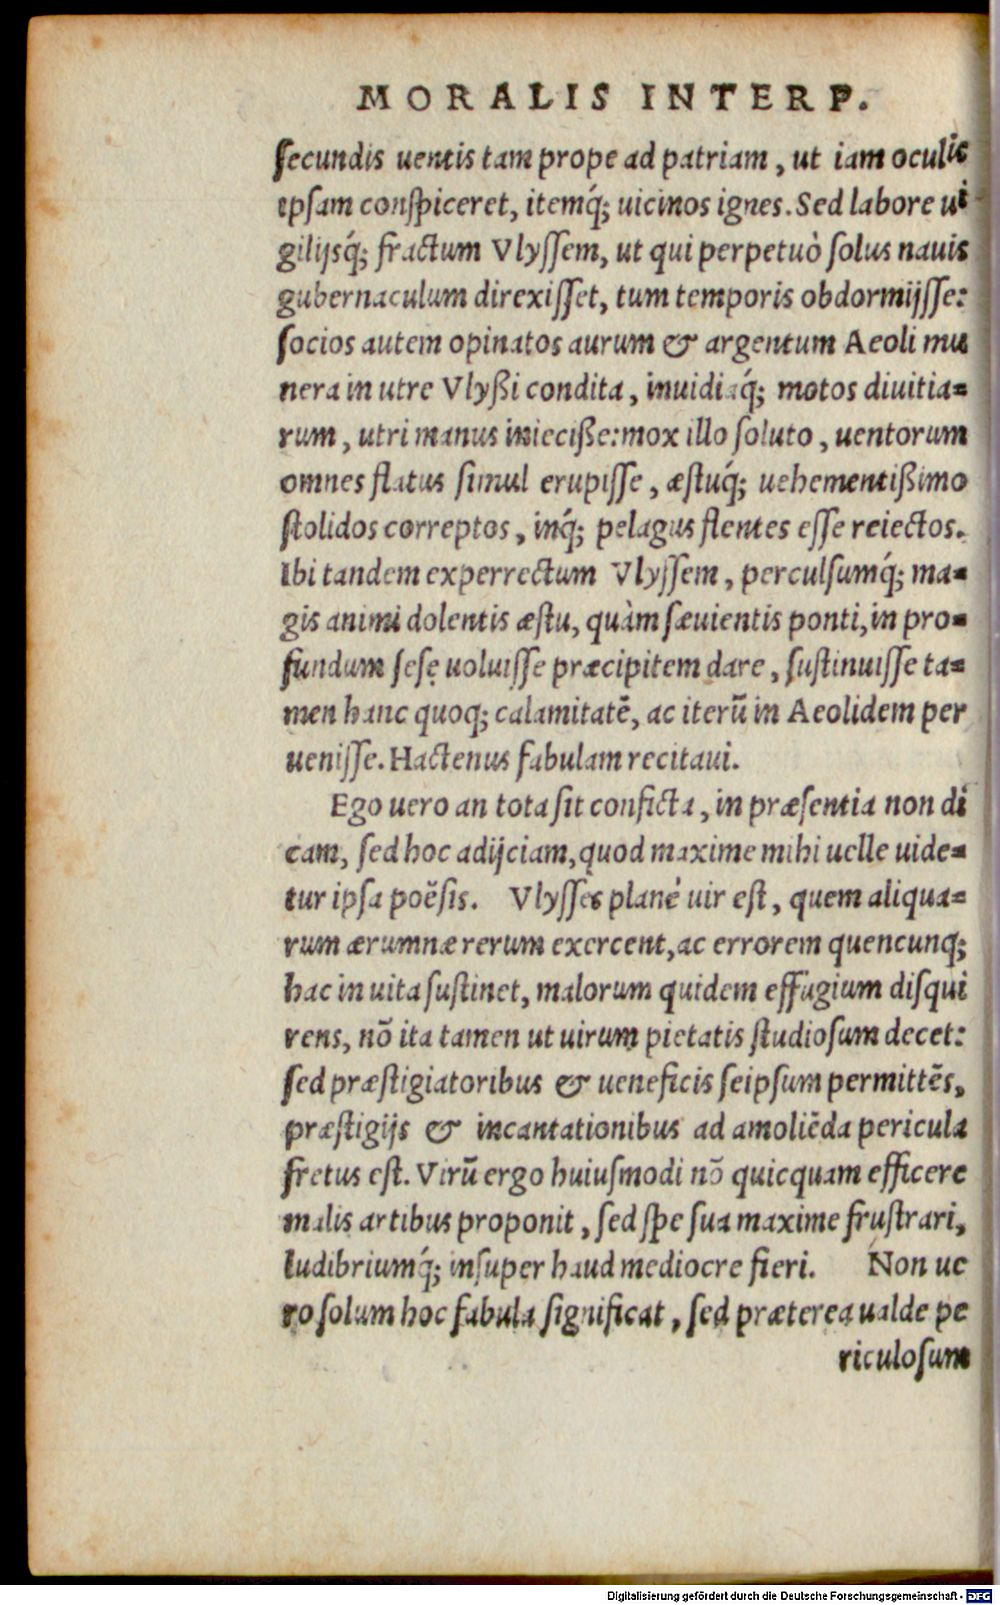 MORALIS INTERP.
ſecundis uentis tam prope ad patriam, ut iam oculis
ipſam conſpiceret, itemq́; uicinos ignes. Sed labore ui
gilijsq́; fractum Vlyſſem, ut qui perpetuò ſolus nauis
gubernaculum direxiſſet, tum temporis obdormijſſe:
ſocios autem opinatos aurum & argentum Aeoli mu
nera in utre Vlyßi condita, inuidiaq́; motos diuitia=
rum, utri manus inieciße: mox illo ſoluto, uentorum
omnes flatus ſimul erupiſſe, æſtuq́; uehementißimo
ſtolidos correptos, inq́; pelagus flentes eſſe reiectos.
Ibi tandem experrectum Vlyſſem, perculſumq́; ma=
gis animi dolentis æſtu, quàm ſæuientis ponti, in pro=
fundum ſeſe uoluiſſe præcipitem dare, ſuſtinuiſſe ta=
men hanc quoq; calamitatē, ac iterū in Aeolidem per
ueniſſe. Hactenus fabulam recitaui.
Ego uero an tota ſit conficta, in præſentia non di
cam, ſed hoc adijciam, quod maxime mihi uelle uide=
tur ipſa poëſis. Vlyſſes planè uir eſt, quem aliqua=
rum ærumnæ rerum exercent, ac errorem quencunq;
hac in uita ſuſtinet, malorum quidem effugium diſqui
rens, nō ita tamen ut uirum pietatis ſtudioſum decet:
ſed præſtigiatoribus & ueneficis ſeipſum permittēs,
præſtigijs & incantationibus ad amoliēda pericula
fretus eſt. Virū ergo huiuſmodi nō quicquam efficere
malis artibus proponit, ſed ſpe ſua maxime fruſtrari,
ludibriumq́; inſuper haud mediocre fieri. Non ue
ro ſolum hoc fabula ſignificat, ſed præterea ualde pe
riculoſum
Digitalisierung gefördert durch die Deutsche Forschungsgemeinschaft - DFG